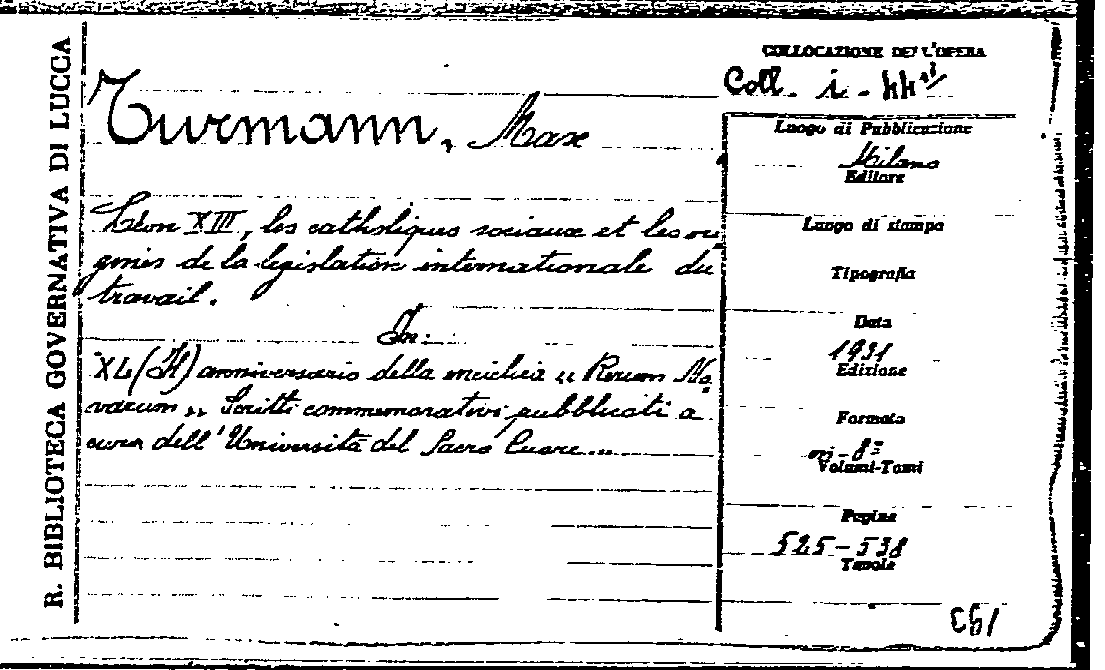 R. BIBLIOTECA GOVERNATIVA DI LUCCA
Turmann, Max
Léon XIII, les catholiques sociaux et les ori
gines de la législation internationale du
travail.
In:
XL (Il) anniversario della enciclica „ Rerum No
varum „ Scritti commemorativi pubblicati a
cura dell'Università del Sacro Cuore...
COLLOCAZIONE DELL'OPERA
Coll. i - 44
Luogo di Pubblicazione
Milano
Editore
Luogo di stampa
Tipografia
Data
1931
Edizione
Formato
in-8º
Volumi-Tomi
Pagine
525-538
Tavole